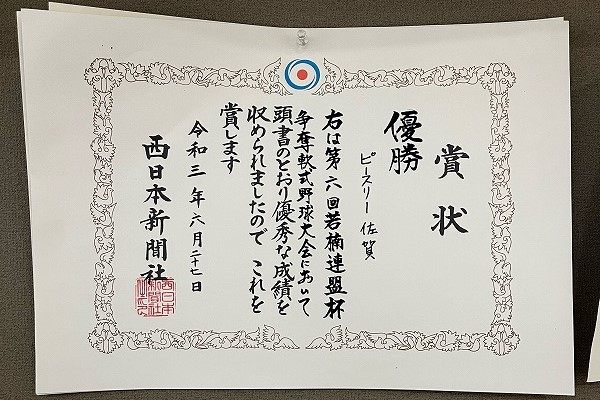 賞状
優勝
ピースリー佐賀
右は第六回若楠連盟杯
争奪軟式野球大会において
頭書のとおり優秀な成績を
収められましたので これを
賞します
令和三年六月二十七日
西日本新聞社